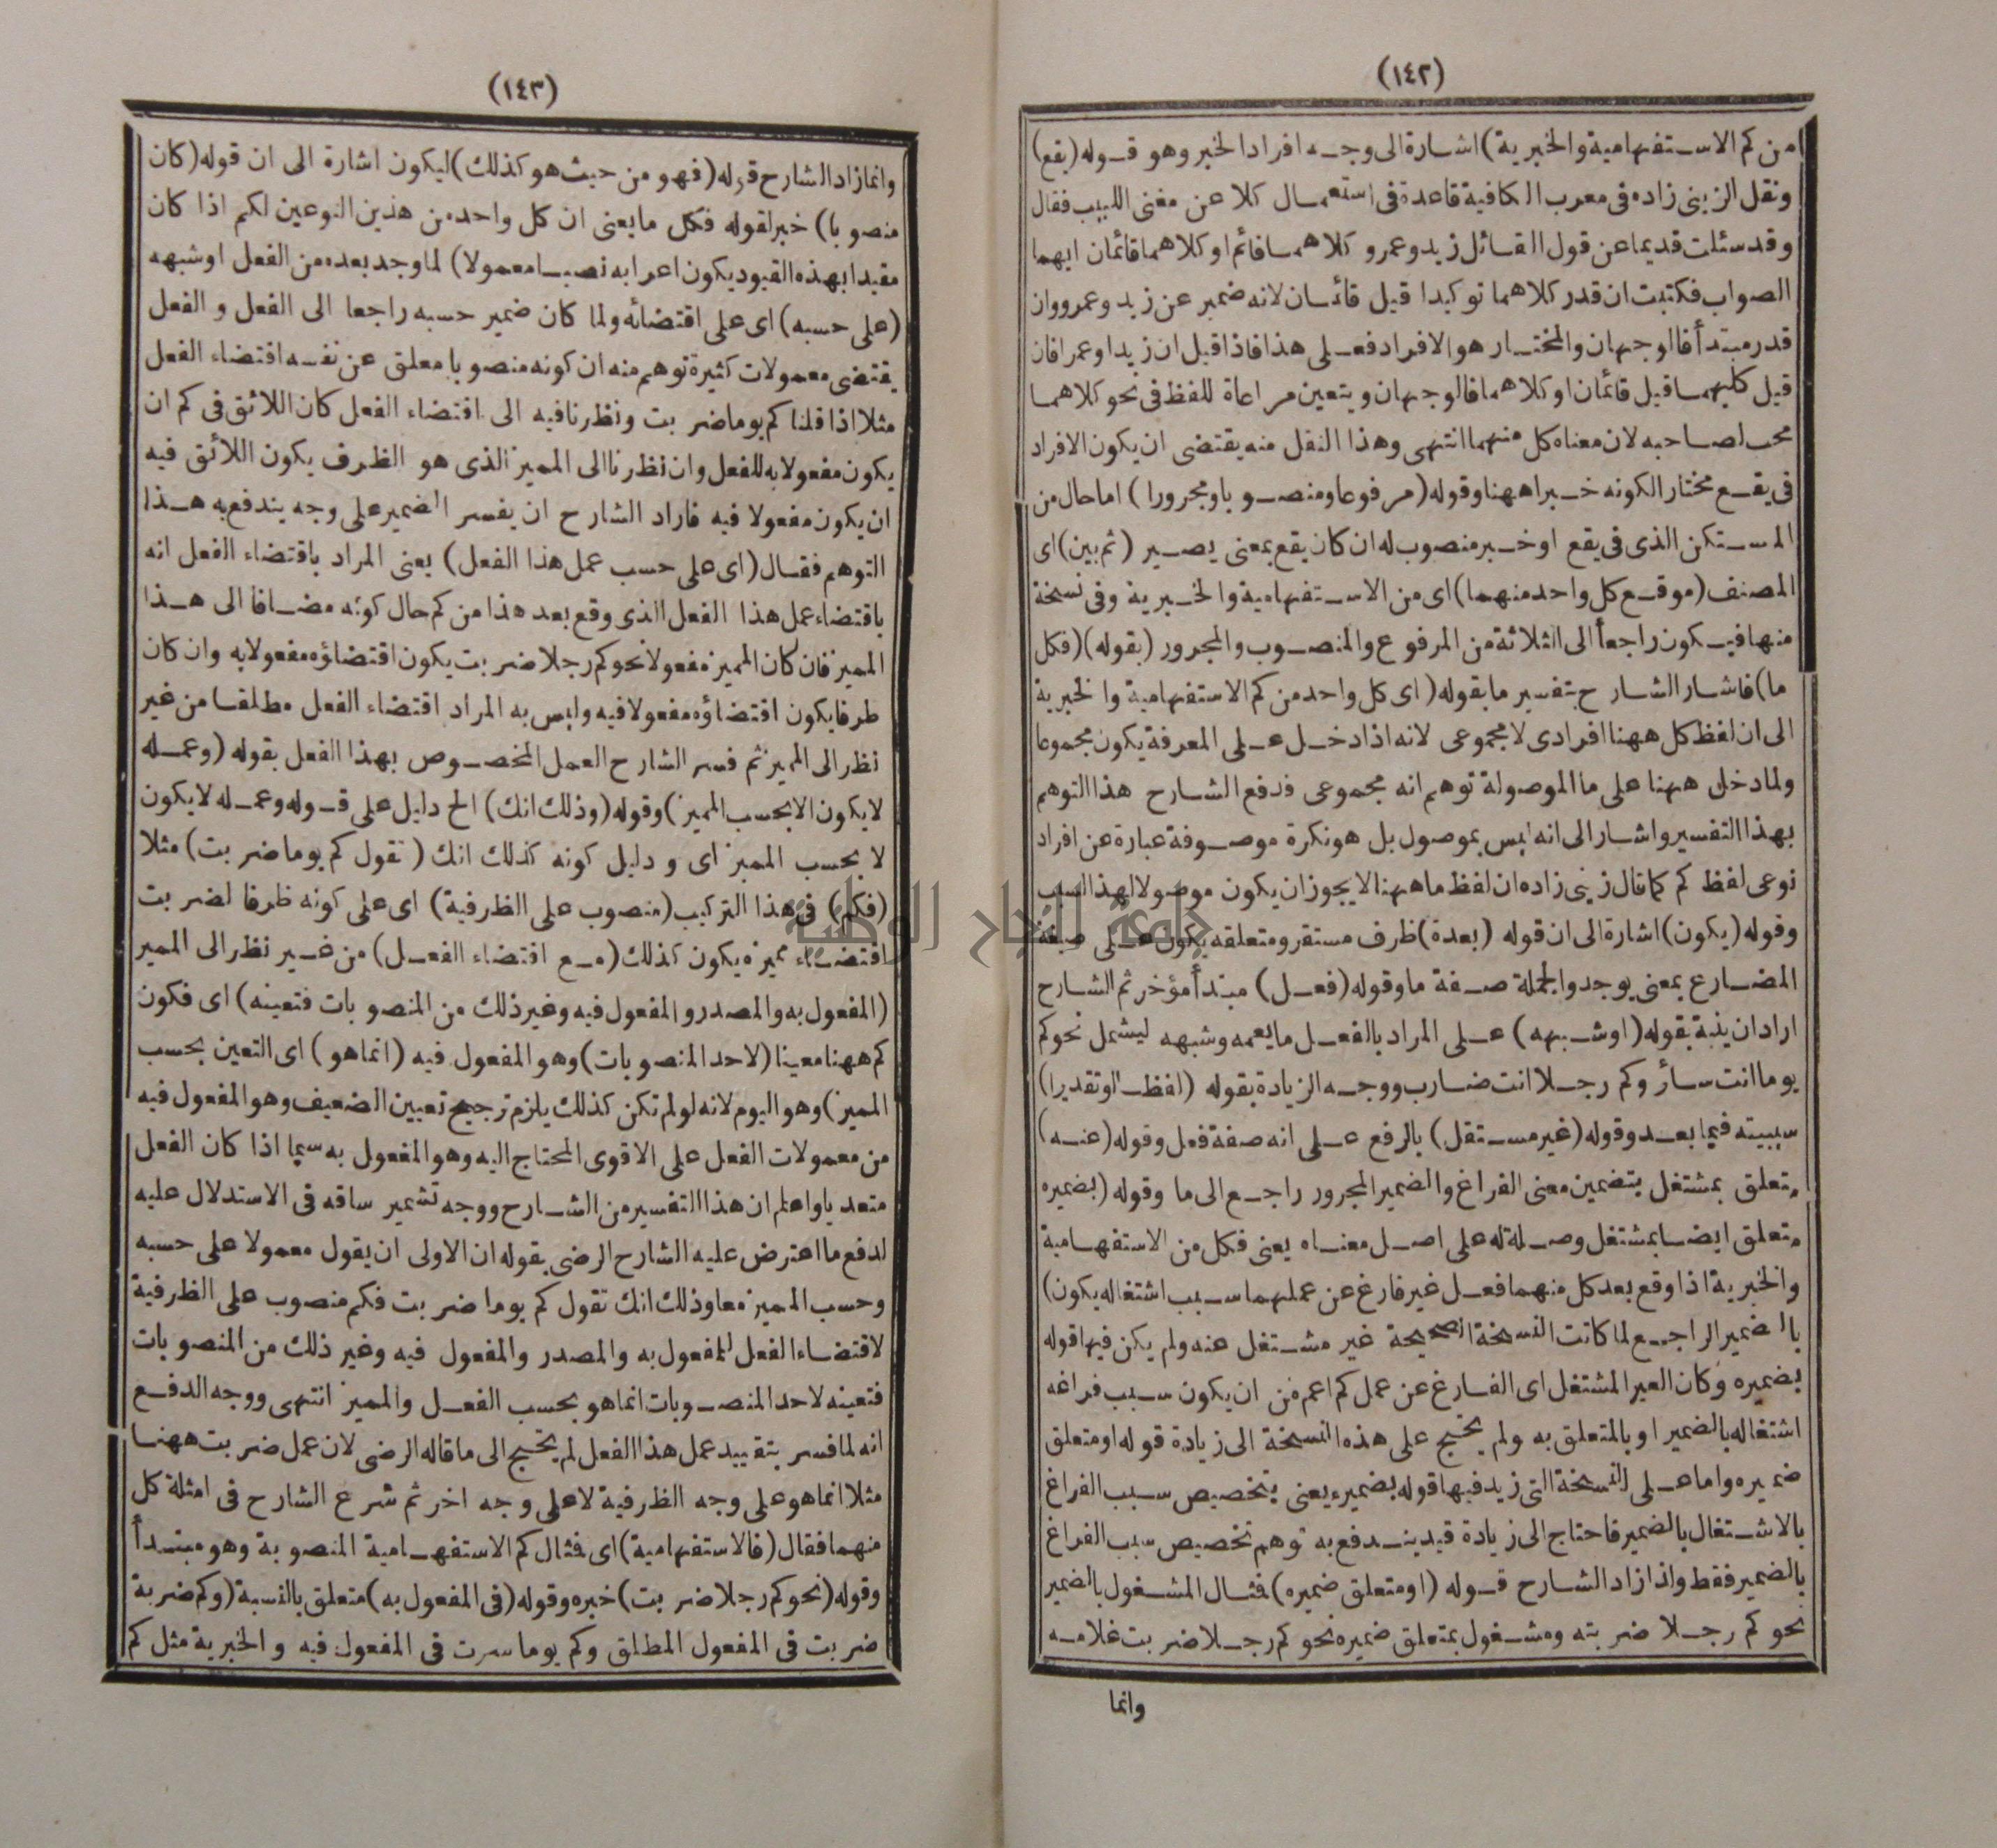 (١٤٢)
من كم الاستفهامية والخبرية) اشارة الى وجه افراد الخبر وهو قوله (يقع)
ونقل الزينى زاده فى معرب الكافية قاعدة فى استعمال كلا عن مغنى اللبيب فقال
وقد سئلت قديما عن قول القائل زيد وعمرو كلاهما قائم او كلاهما قائمان ايهما
الصواب فكتبت ان قدر كلاهما توكيدا قيل قائمان لانه خبر عن زيد وعمرو وان
قدر مبتدأ فالوجهان والمختار هو الافراد فعلى هذا فاذا قيل ان زيدا وعمرا فان
قيل كليهما قيل قائمان او كلاهما فالوجهان ويتعين مراعاة للفظ فى نحو كلاهما
محب لصاحبه لان معناه كل منهما انتهى وهذا النقل منه يقتضى ان يكون الافراد
فى يقع مختارا لكونه خبرا ههنا وقوله (مرفوعا ومنصوبا ومجرورا) اما حال من
المستكن الذى فى يقع او خبر منصوب له ان كان يقع بمعنى يصير (ثم بين) اى
المصنف (موقع كل واحد منهما) اى من الاستفهامية والخبرية وفى نسخة
منها فيكون راجعا الى الثلاثة من المرفوع والمنصوب والمجرور (بقوله) (فكل
ما) فاشار الشارح بتفسير ما بقوله (اى كل واحد من كم الاستفهامية والخبرية
الى ان لفظ كل ههنا افرادى لا مجموعى لانه اذا دخل على المعرفة يكون مجموعا
ولما دخل ههنا على ما الموصولة توهم انه مجموعى فدفع الشارح هذا التوهم
بهذا التفسير واشار الى انه ليس بموصول بل هو نكرة موصوفة عبارة عن افراد
نوعى لفظ كم كما قال زينى زاده ان لفظ ما ههنا لا يجوز ان يكون موصولا لهذا السبب
وقوله (يكون) اشارة الى ان قوله (بعدة) ظرف مستقر ومتعلقه يكون على صيغة
المضارع بمعنى يوجد والجملة صفة ما وقوله (فعل) مبتدأ مؤخر ثم الشارح
اراد ان ينبه بقوله (او شبهه) على المراد بالفعل ما يعمه وشبهه ليشمل نحو كم
يوما انت سائر وكم رجلا انت ضارب ووجه الزيادة بقوله (لفظا او تقديرا)
سيبينه فيما بعد وقوله (غير مستقل) بالرفع على انه صفة فعل وقوله (عنه)
متعلق بمشتغل بتضمين معنى الفراغ والضمير المجرور راجع الى ما وقوله (بضميره
متعلق ايضا بمشتغل وصلة له على اصل معناه يعنى فكل من الاستفهامية
والخبرية اذا وقع بعد كل منهما فعل غير فارغ عن عملهما سبب اشتغاله يكون)
بالضمير الراجع لما كانت النسخة الصحيحة غير مشتغل عنه ولم يكن فيها قوله
بضميره وكان الغير المشتغل اى الفارغ عن عمل كم اعم من ان يكون سبب فراغه
اشتغاله بالضمير او بالمتعلق به ولم يحتج على هذه النسخة الى زيادة قوله او متعلق
ضميره واما على النسخة التى زيد فيها قوله بضميره يعنى بتخصيص سبب الفراغ
بالاشتغال بالضمير فاحتاج الى زيادة قيد يندفع به توهم تخصيص سبب الفراغ
بالضمير فقط ولذا زاد الشارح قوله (او متعلق ضميره) فمثال المشغول بالضمير
نحو كم رجلا ضربته ومشغول بمتعلق ضميره نحو كم رجلا ضربت غلامه
وانما
(١٤٣)
وانما زاد الشارح قوله (فهو من حيث هو كذلك) ليكون اشارة الى ان قوله (كان
منصوبا) خبر لقوله فكل ما يعنى ان كل واحد من هذين النوعين لكم اذا كان
مقيدا بهذه القيود يكون اعرابه نصبا معمولا) لما وجد بعده من الفعل او شبهه
(على حسبه) اى على اقتضائه ولما كان ضمير حسبه راجعا الى الفعل و الفعل
يقتضى معمولات كثيرة توهم منه ان كونه منصوبا معلق عن نفسه اقتضاء الفعل
مثلا اذا قلنا كم يوما ضربت ونظرنا فيه الى اقتضاء الفعل كان اللائق فى كم ان
يكون مفعولا به للفعل وان نظرنا الى المميز الذى هو الظرف يكون اللائق فيه
ان يكون مفعولا فيه فاراد الشارح ان يفسر الضمير على وجه يندفع به هذا
التوهم فقال (اى على حسب عمل هذا الفعل) يعنى المراد باقتضاء الفعل انه
باقتضاء عمل هذا الفعل الذى وقع بعد هذا من كم حال كونه مضافا الى هذا
المميز فان كان المميز مفعولا نحو كم رجلا ضربت يكون اقتضاؤه مفعولا به وان كان
ظرفا يكون اقتضاؤه مفعولا فيه وليس به المراد اقتضاء الفعل مطلقا من غير
نظر الى المميز ثم فسر الشارح العمل المخصوص بهذا الفعل بقوله (وعمله
لا يكون الا بحسب المميز) وقوله (وذلك انك) الخ دليل على قوله وعمله لا يكون
لا بحسب المميز اى و دليل كونه كذلك انك (تقول كم يوما ضربت) مثلا
(فكم) فى هذا التركيب (منصوب على الظرفية) اى على كونه ظرفا لضربت
اقتضاء مميزه يكون كذلك (مع اقتضاء الفعل) من غير نظر الى المميز
(المفعول به والمصدر و المفعول فيه وغير ذلك من المنصوبات فتعينه) اى فكون
كم ههنا معينا (لاحد المنصوبات) وهو المفعول فيه (انما هو) اى التعين بحسب
المميز) وهو اليوم لانه لو لم تكن كذلك يلزم ترجيح تعيين الضعيف وهو المفعول فيه
من معمولات الفعل على الاقوى المحتاج اليه وهو المفعول به سيما اذا كان الفعل
متعديا واعلم ان هذا التفسير من الشارح ووجه تشمير ساقه فى الاستدلال عليه
لدفع ما اعترض عليه الشارح الرضى بقوله ان الاولى ان يقول معمولا على حسبه
وحسب المميز معا وذلك انك تقول كم يوما ضربت فكم منصوب على الظرفية
لاقتضاء الفعل للمفعول به والمصدر والمفعول فيه وغير ذلك من المنصوبات
فتعينه لاحد المنصوبات انما هو بحسب الفعل والمميز انتهى ووجه الدفع
انه لما فسر بتقييد عمل هذا الفعل لم يحتج الى ما قاله الرضى لان عمل ضربت ههنا
مثلا انما هو على وجه الظرفية لا على وجه اخر ثم شرع الشارح فى امثلة كل
منهما فقال (فالاستفهامية) اى فمثال كم الاستفهامية المنصوبة وهو مبتدأ
وقوله (نحو كم رجلا ضربت) خبره وقوله (فى المفعول به) متعلق بالنسبة (وكم ضربة
ضربت فى المفعول المطلق وكم يوما سرت فى المفعول فيه و الخبرية مثل كم
جامعة النجاح الوطنية